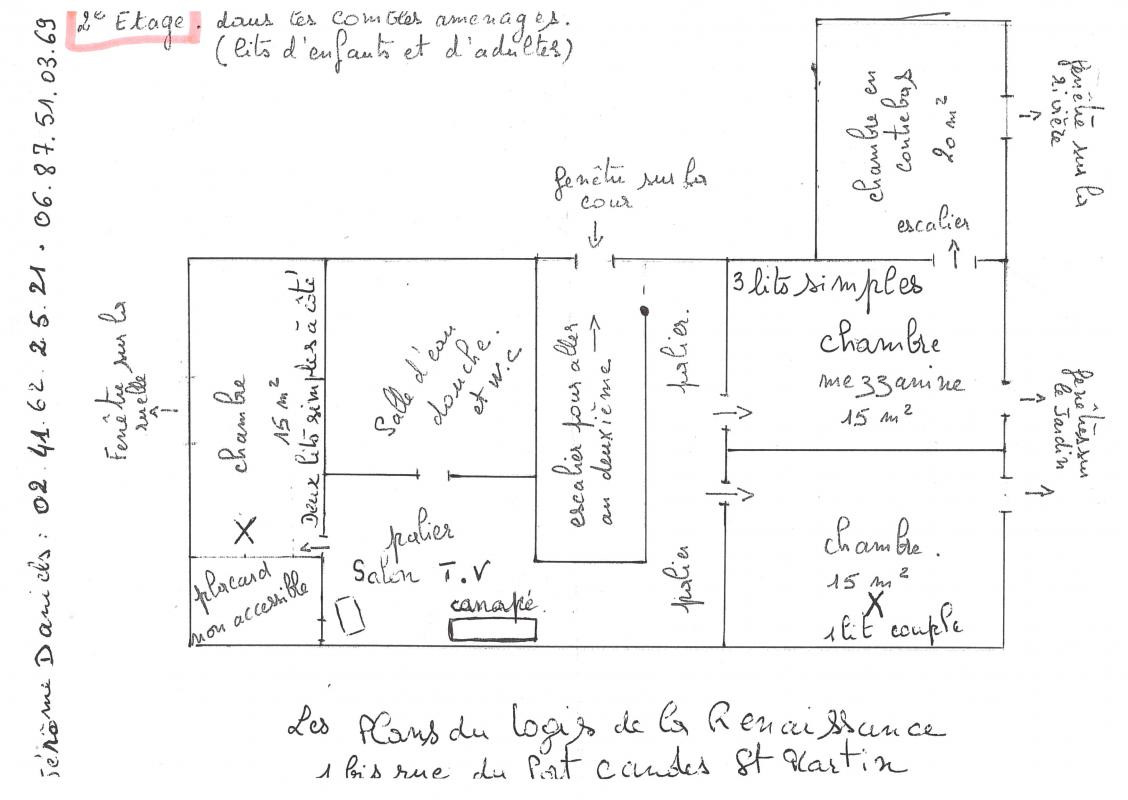 2e Etage. dans les combles aménagés.
(lits d'enfants et d'adultes)
Jérôme Daniels: 02.41.62.25.21. 06.87.51.03.69
chambre en
contrebas
20 m²
fenêtre sur la
rivière
escalier
fenêtre sur la
cour
Fenêtre sur la
ruelle
chambre
15 m²
X
Deux lits simples à côté
Salle d'eau
douche.
et W.C
escalier pour aller
au deuxième
palier.
3 lits simples
chambre
mezzanine
15 m²
fenêtres sur
le Jardin
placard
non accessible
palier
Salon T.V
canapé.
palier
chambre.
15 m²
X
1 lit couple
Les Plans du logis de la Renaissance
1 bis rue du Port Candes St Martin